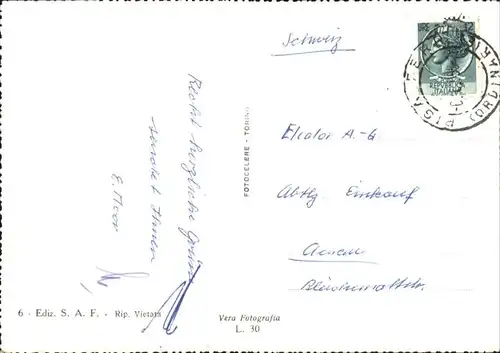 Recht herzliche Grüsse
sendet Ihnen
E. Moor
FOTOCELERE - TORINO
6 - Ediz. S. A. F. - Rip. Vietata
Vera Fotografia
L. 30
Schweiz
REPVBBLICA
ITALIANA
PISA
Elcalor A.-G
Abtlg Einkauf
Aarau